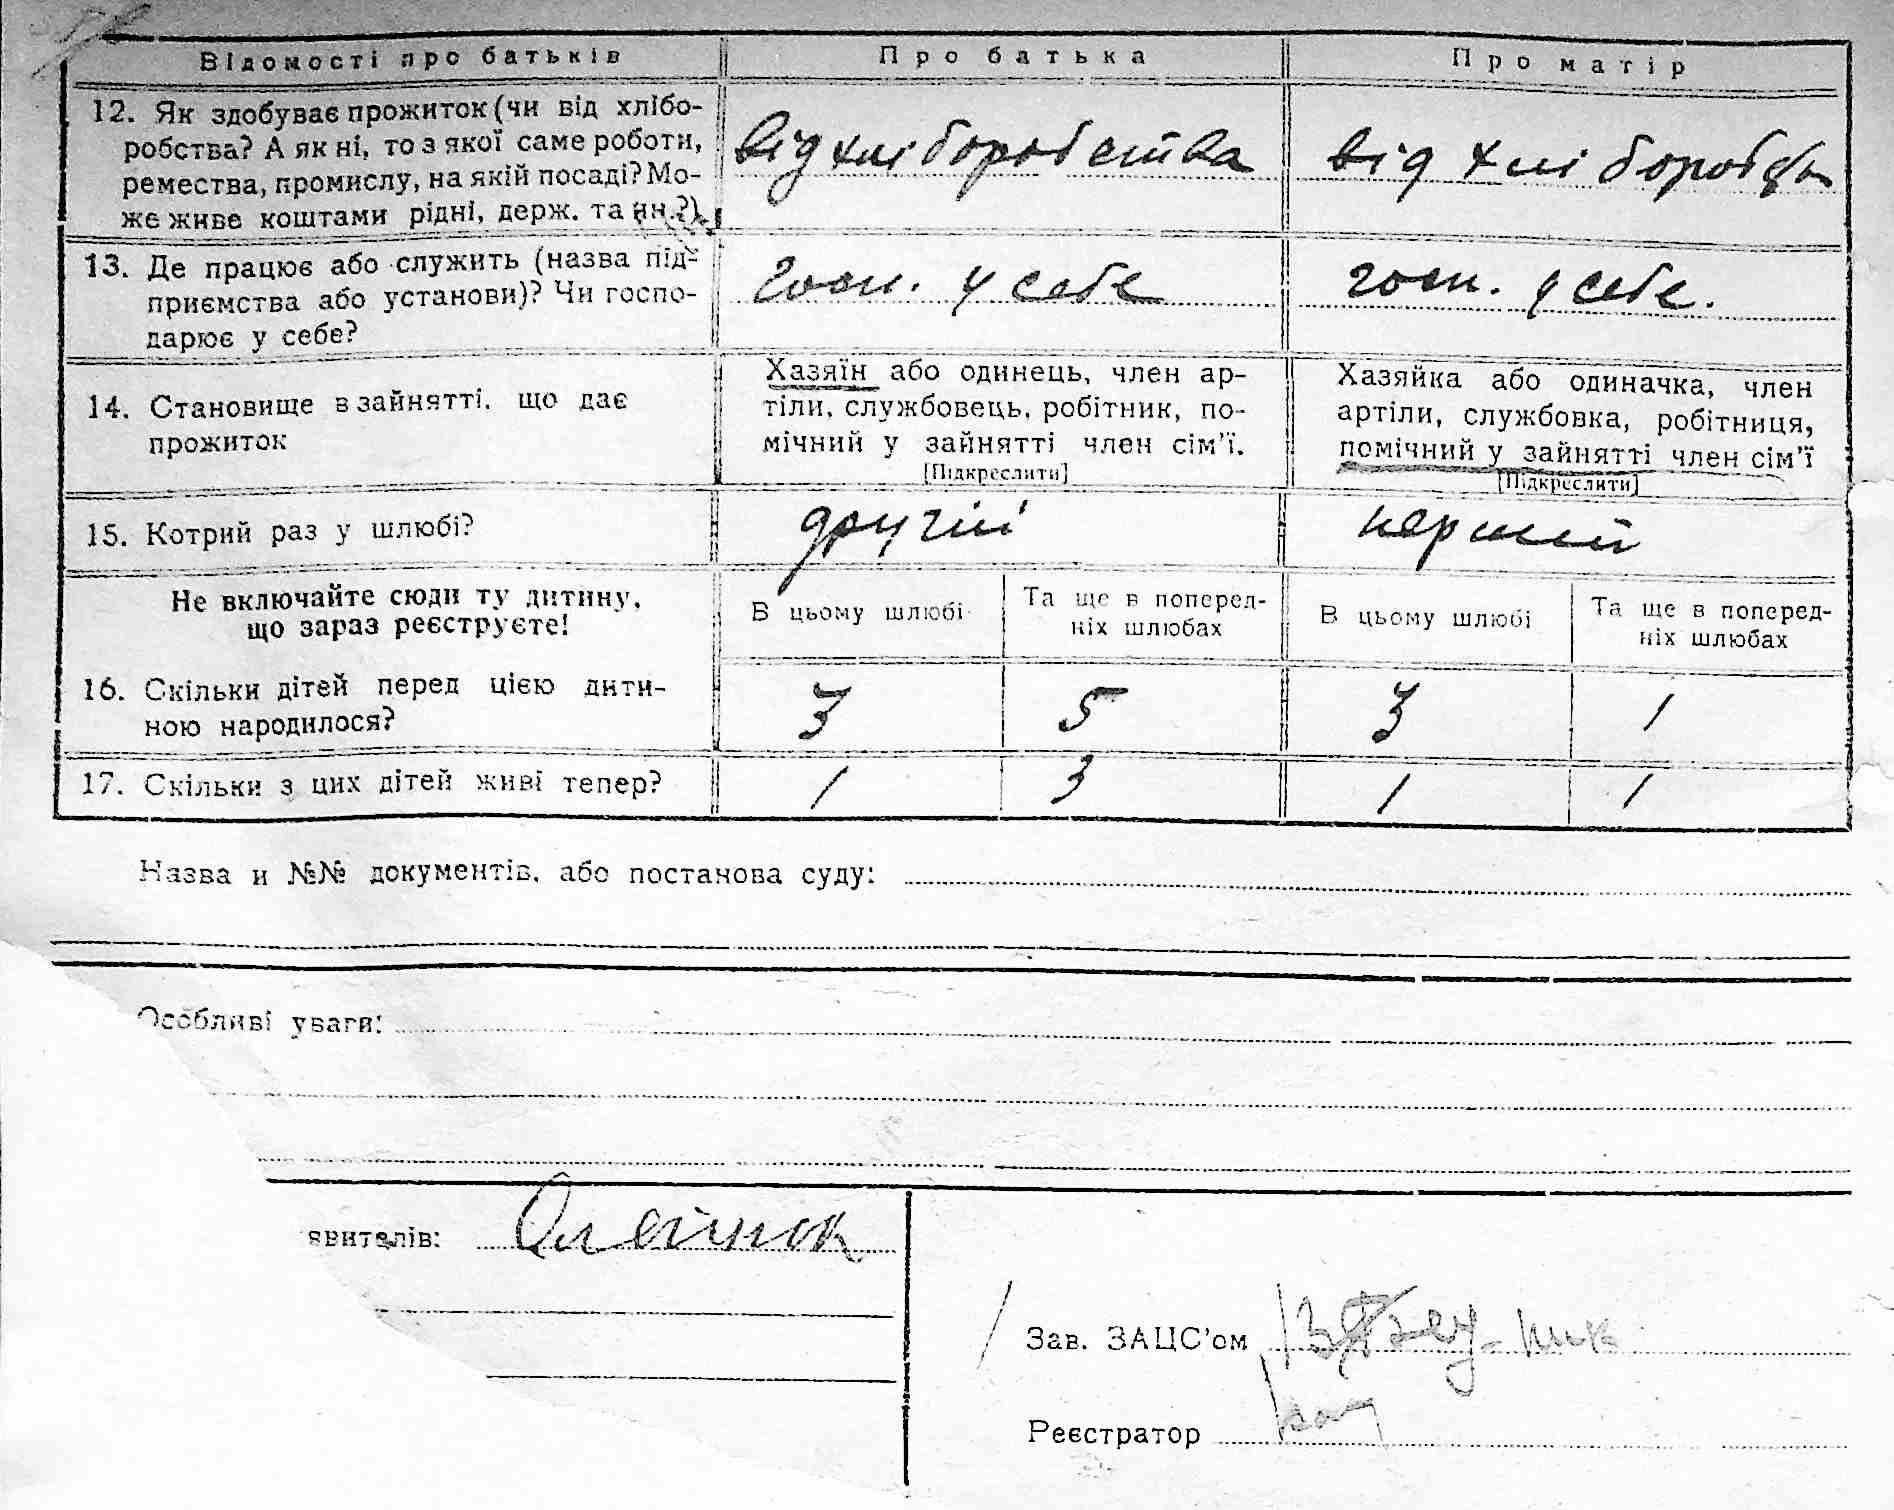 Відомості про батьків
Про батька
Про матір
12. Як здобуває прожиток (чи від хлібо-
робства? А як ні, то з якої саме роботи,
ремества, промислу, на якій посаді? Мо-
же живе коштами рідні, держ. та ин.?)
від хліборобства
від хлі
13. Де працює або служить (назва під-
приємства або установи)? Чи госпо-
дарює у себе?
госп. у себе
госп. у себе.
14. Становище в зайнятті, що дає
прожиток
Хазяїн або одинець, член ар-
тіли, службовець, робітник, по-
мічний у зайнятті член сім'ї.
[Підкреслити]
Хазяйка або одиначка, член
артіли, службовка, робітниця,
помічний у зайнятті член сім'ї
[Підкреслити]
15. Котрий раз у шлюбі?
другий
перший
Не включайте сюди ту дитину,
що зараз реєструєте!
В цьому шлюбі
Та ще в поперед-
ніх шлюбах
В цьому шлюбі
Та ще в поперед-
ніх шлюбах
16. Скільки дітей перед цією дити-
ною народилося?
3 5 3 1
17. Скільки з цих дітей живі тепер?
1 3 1 1
Назва и №№ документів, або постанова суду:
Особливі уваги:
явителів:
Зав. ЗАЦС'ом
Реєстратор